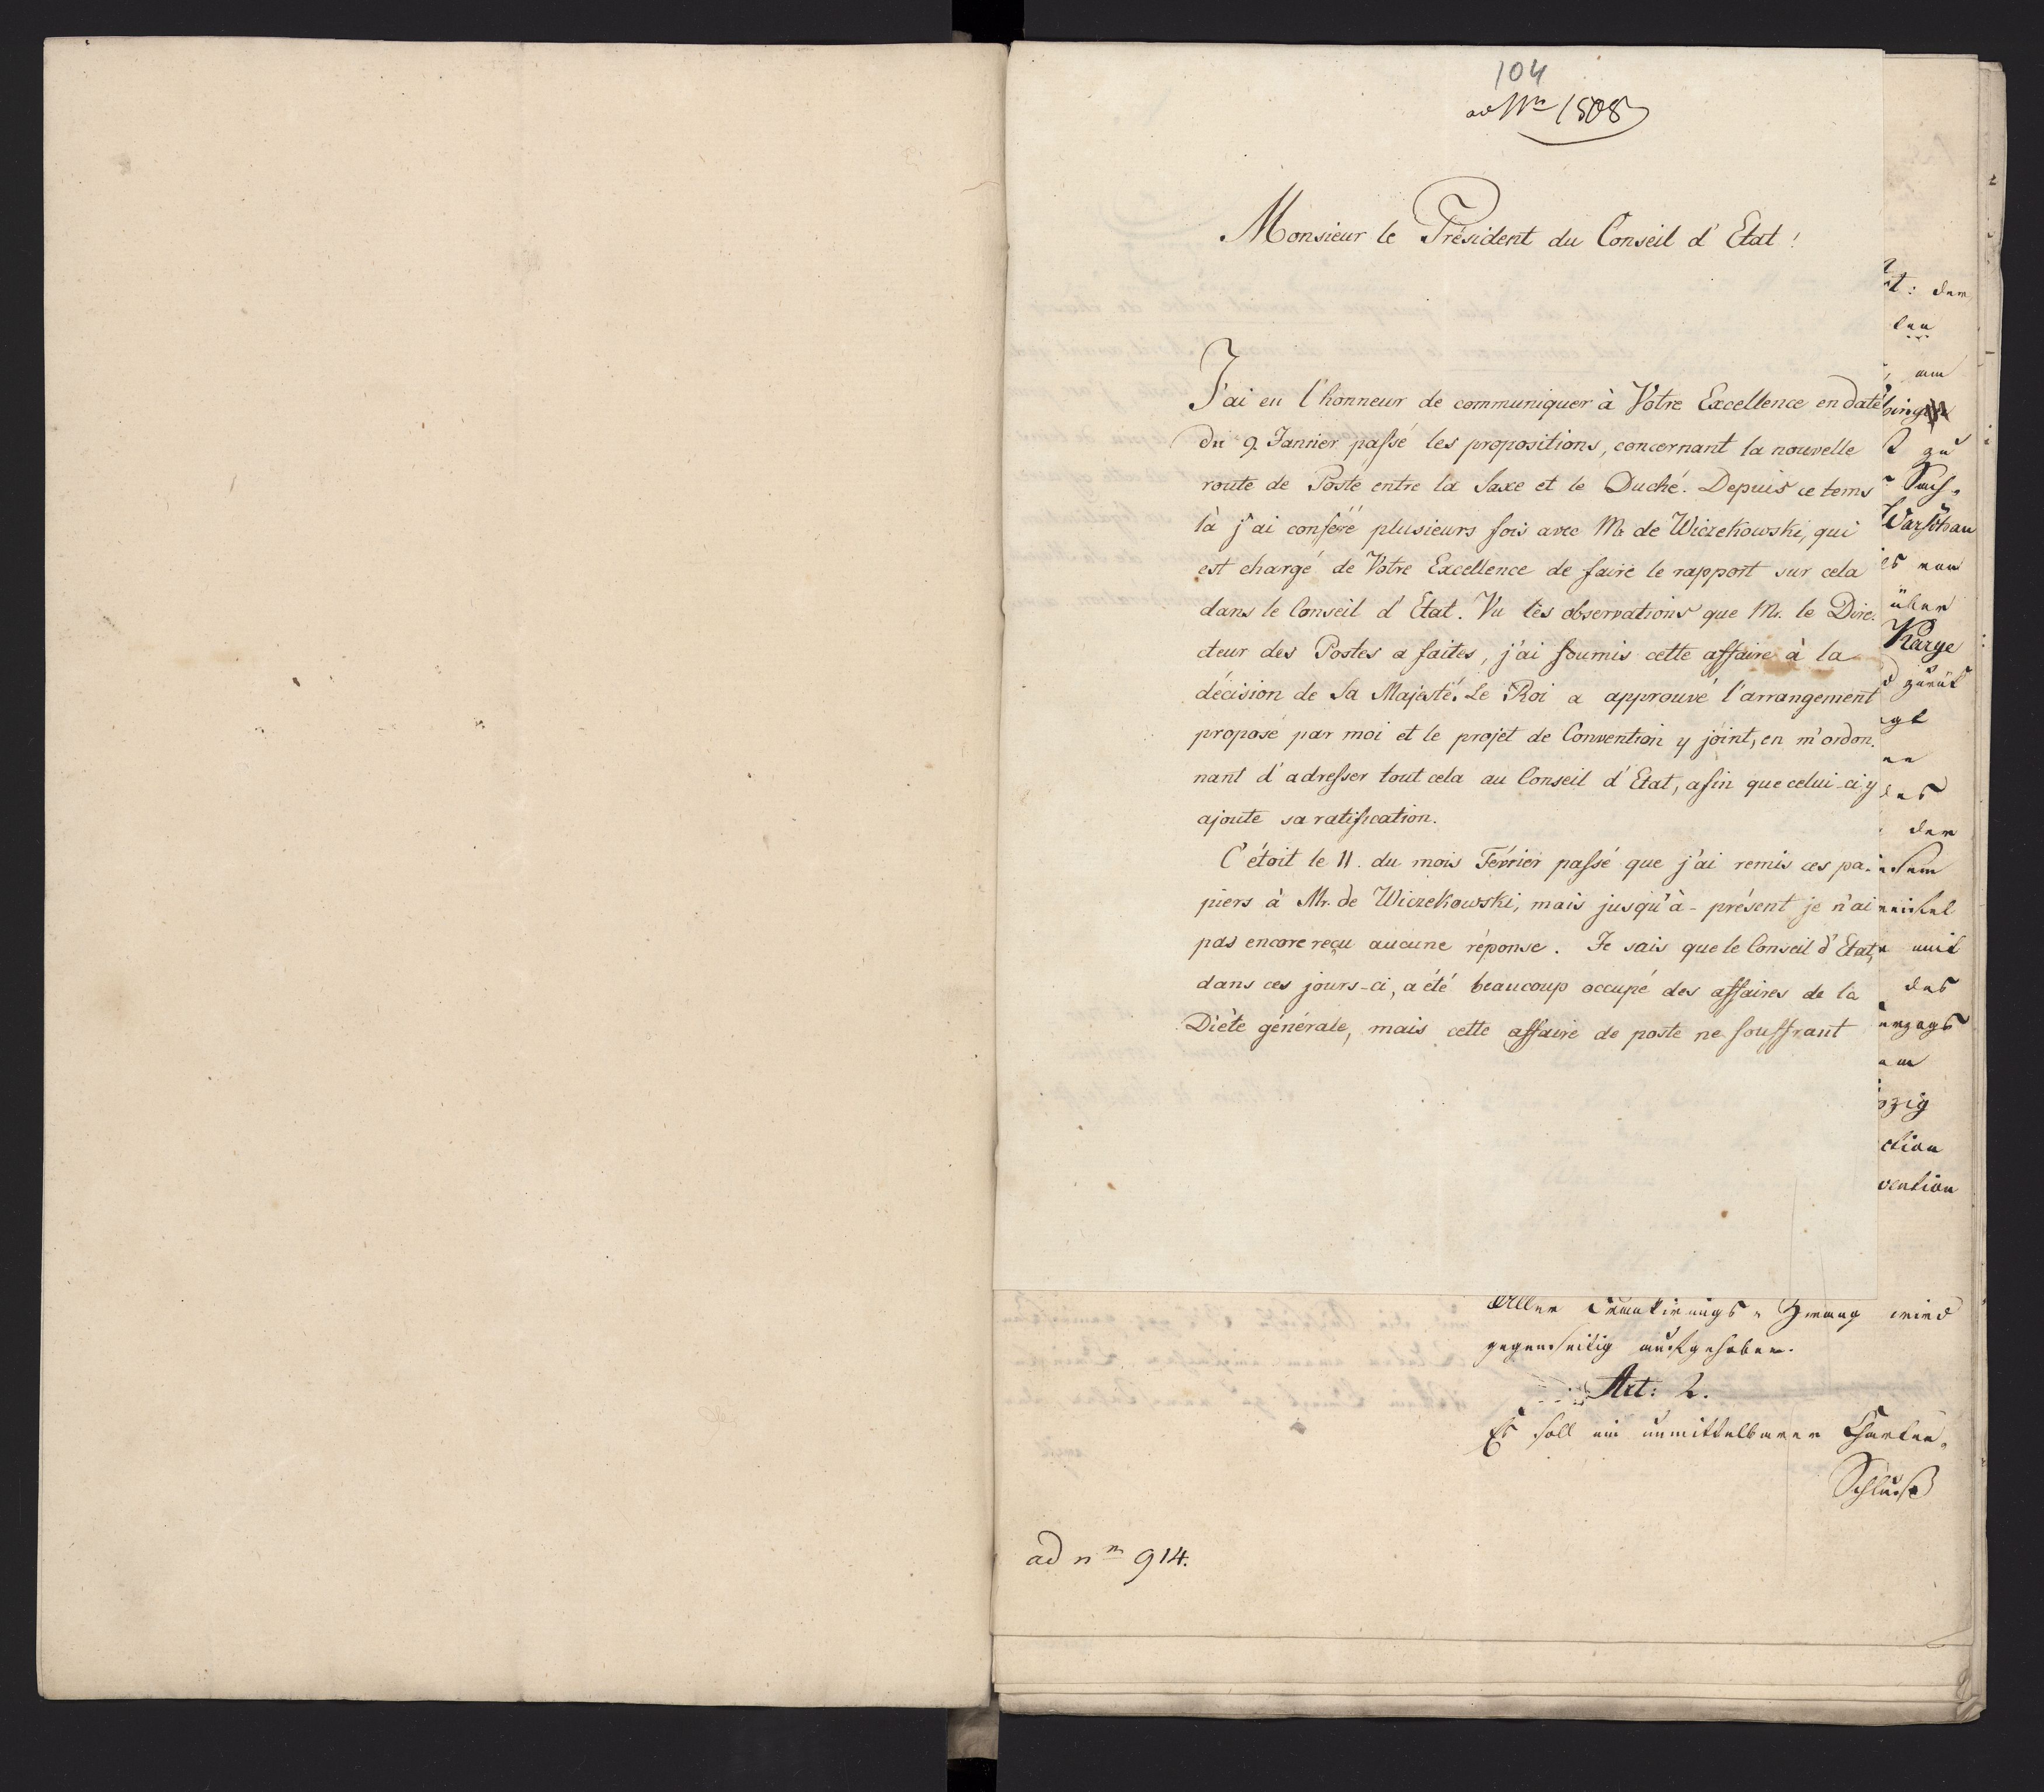 104
ad Nrm 1508
Monsieur le Président du Conseil d'Etat!
J'ai eu l'honneur de communiquer à Votre Excellence en date
du 9. Janvier passé les propositions, concernant la nouvelle
route de Poste entre la Saxe et le Duché. Depuis ce tems
là j'ai conferé plusieurs fois avec Mr. de Wiczekowski, qui
est chargé de Votre Excellence de faire le rapport sur cela
dans le Conseil d'Etat. Vu les observations que Mr. le Direc-
cteur des Postes a faites, j'ai soumis cette affaire à la
décision de Sa Majesté. Le Roi a approuvé l'arrangement
proposé par moi et le projet de Convention y joint, en m'ordon-
nant d'adresser tout cela au Conseil d'Etat, afin que celui-ci y
ajoute sa ratification.
C'étoit le 11. du mois Février passé que j'ai remis ces pa-
piers à Mr. de Wiczekowski, mais jusqu'à-présent je n'ai
pas encore reçu aucune réponse. Je sais que le Conseil d'Etat,
dans ces jours-ci, a été beaucoup occupé des affaires de la
Diète générale, mais cette affaire de poste ne souffrant
der
am
zu
Warschau
von
über
Karge
zurük
der
mit
des
Aller Frankirungs-Zwang wird
gegenseitig aufgehoben.
Art: 2.
Es soll ein unmittelbarer Charten-
Schluß
ad nrm 914.